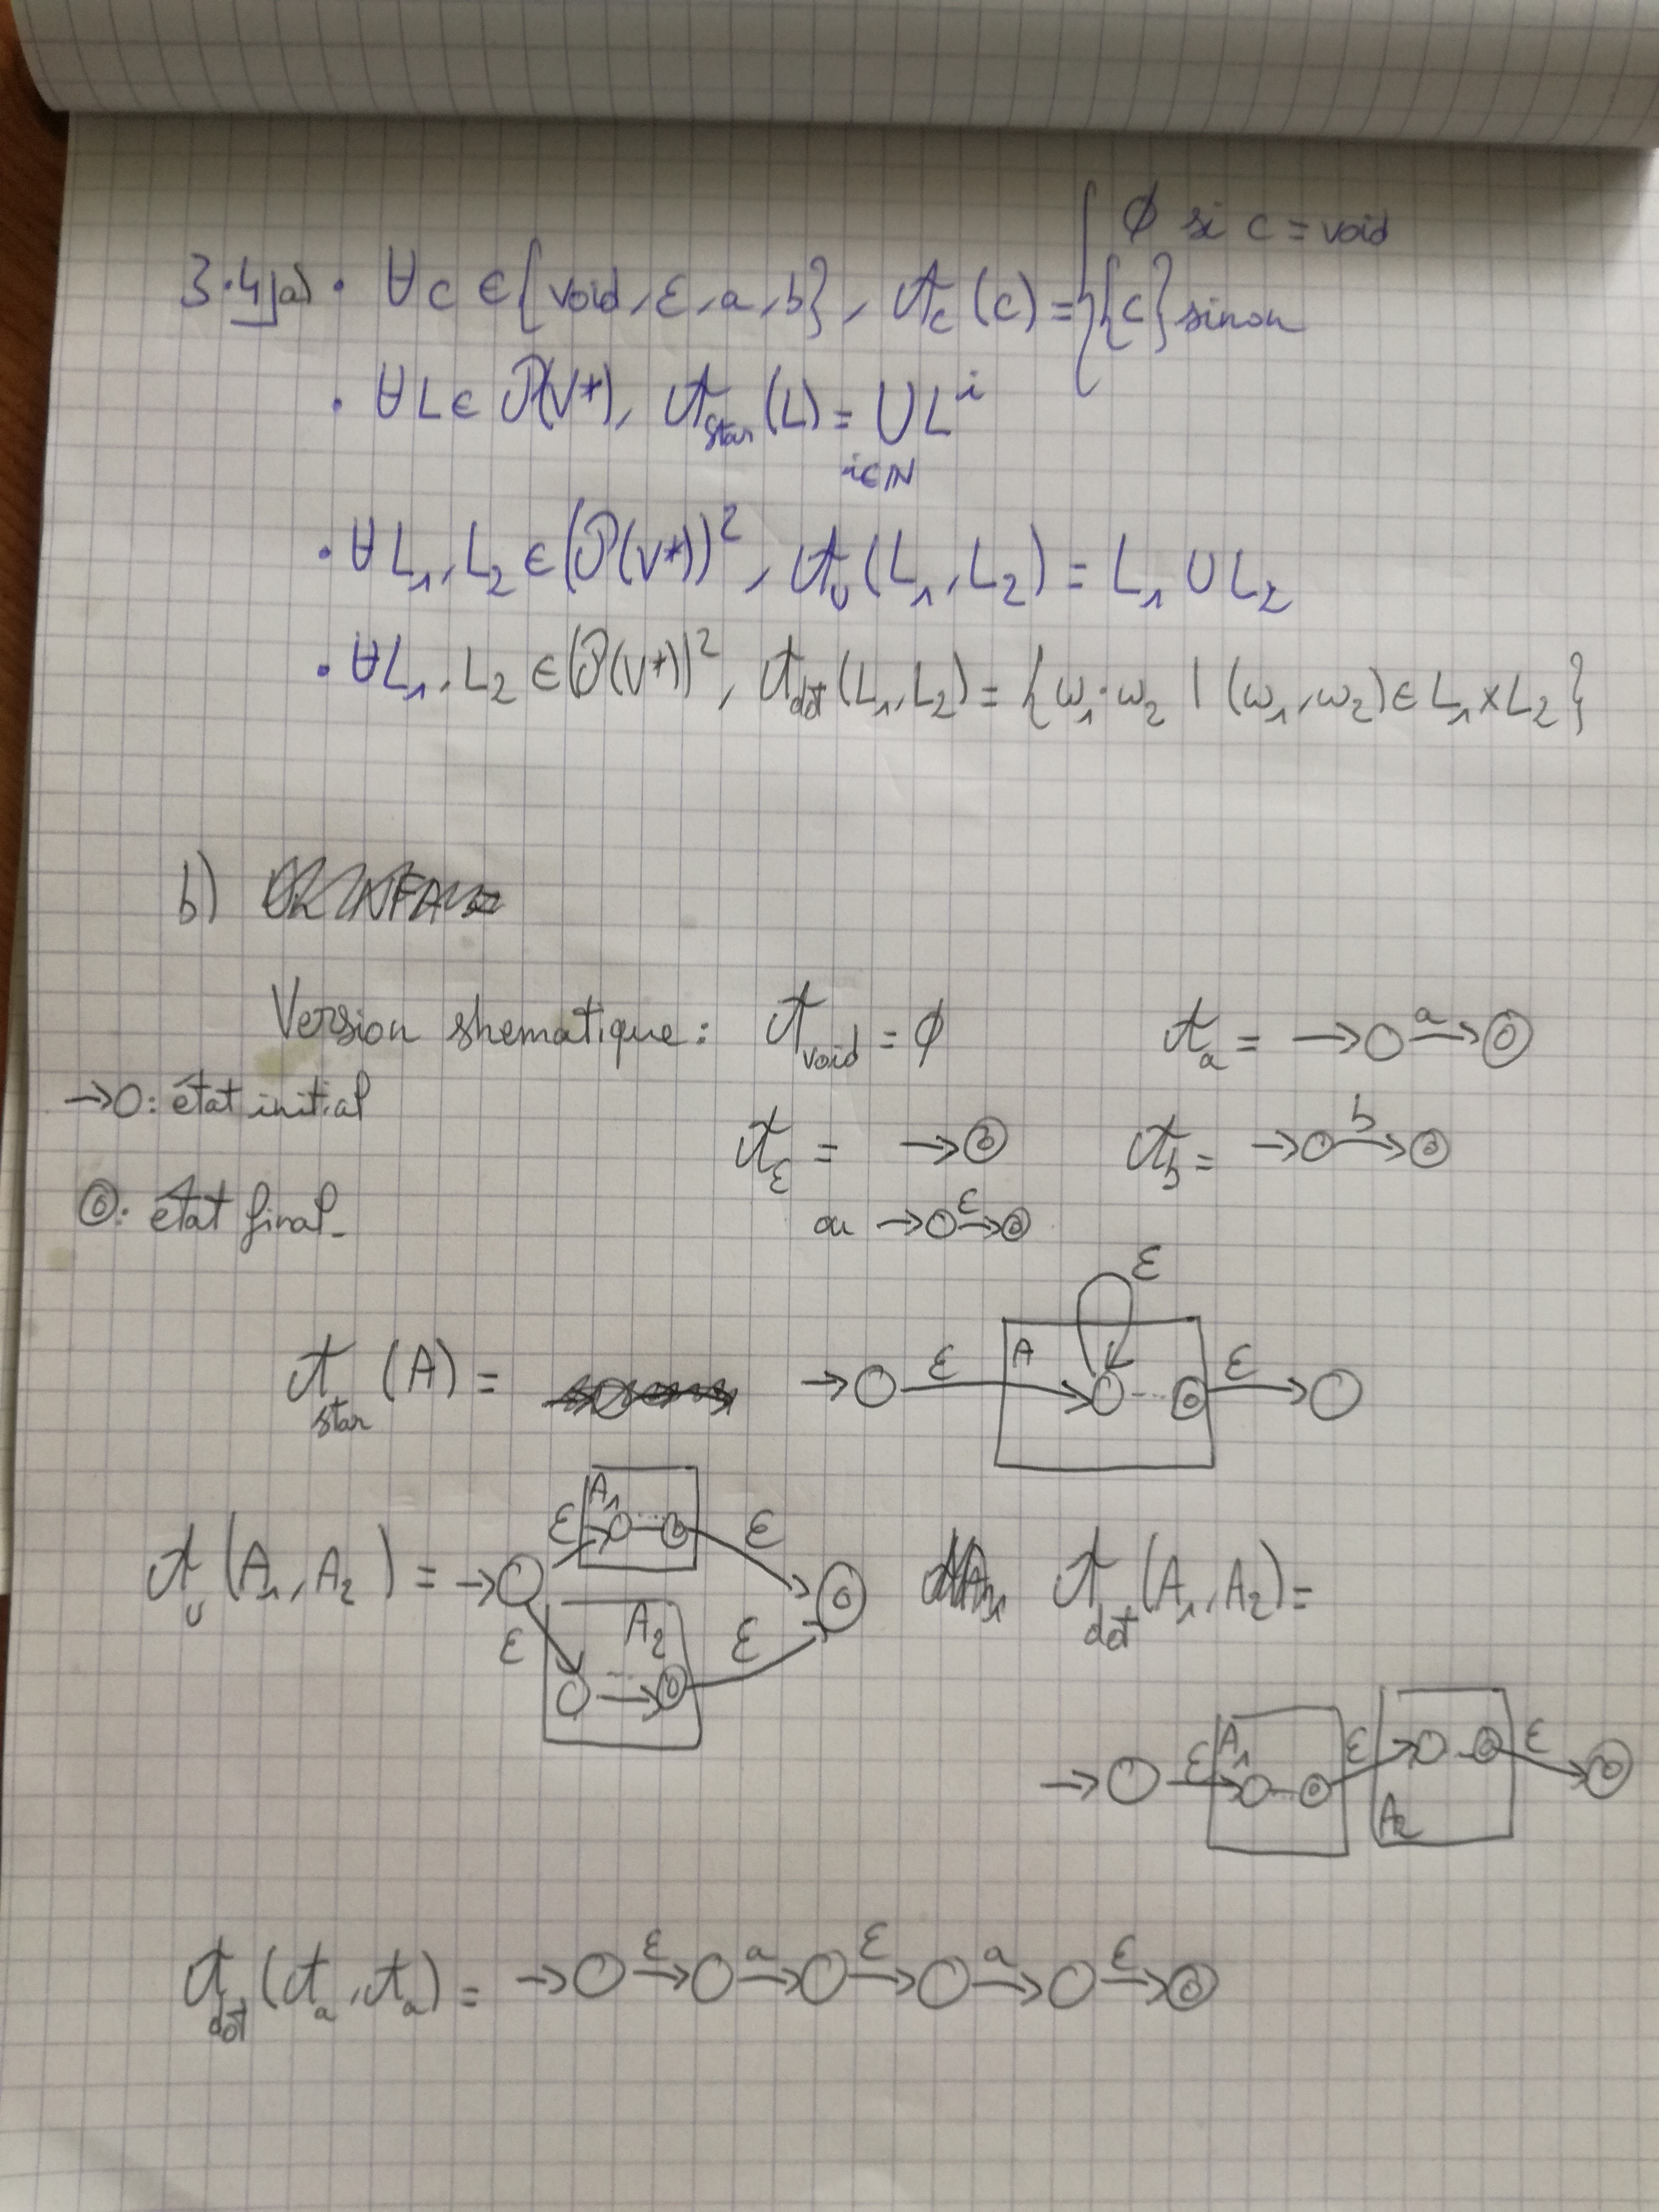 3.4)a) • ∀c ∈ {void, ε, a, b}, 𝒜_c (c) = { ∅ si c = void
{c} sinon
• ∀L ∈ 𝒫(V*), 𝒜_star (L) = ∪_{i∈ℕ} L^i
• ∀L₁, L₂ ∈ (𝒫(V*))², 𝒜_∪ (L₁, L₂) = L₁ ∪ L₂
• ∀L₁, L₂ ∈ (𝒫(V*))², 𝒜_dot (L₁, L₂) = {ω₁·ω₂ | (ω₁, ω₂) ∈ L₁ × L₂}
b)
Version shematique : 𝒜_void = ∅ 𝒜_a = → ○ –a→ ◎
→○ : état initial
𝒜_ε = → ◎ 𝒜_b = → ○ –b→ ◎
◎ : état final
ou → ○ –ε→ ◎
ε
𝒜_star (A) = → ○ ε A ○ ... ◎ ε → ○
𝒜_∪ (A₁, A₂) = → ○ ε A₁ ○ ... ◎ ε ◎
ε A₂ ○ ... → ◎ ε
𝒜_dot (A₁, A₂) =
→ ○ ε A₁ ○ ... ◎ ε A₂ ○ ... ◎ ε → ◎
𝒜_dot (𝒜_a, 𝒜_a) = → ○ –ε→ ○ –a→ ○ –ε→ ○ –a→ ○ –ε→ ◎